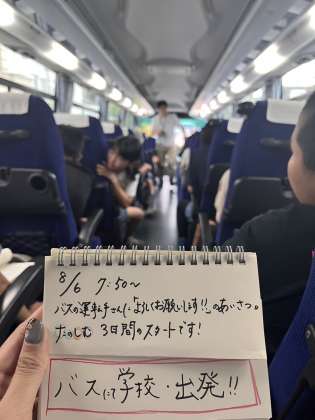 8/6 7:50～
バスの運転手さんに"よろしくお願いします!!"のあいさつ。
たのしむ 3日間のスタートです!
バスにて学校・出発!!